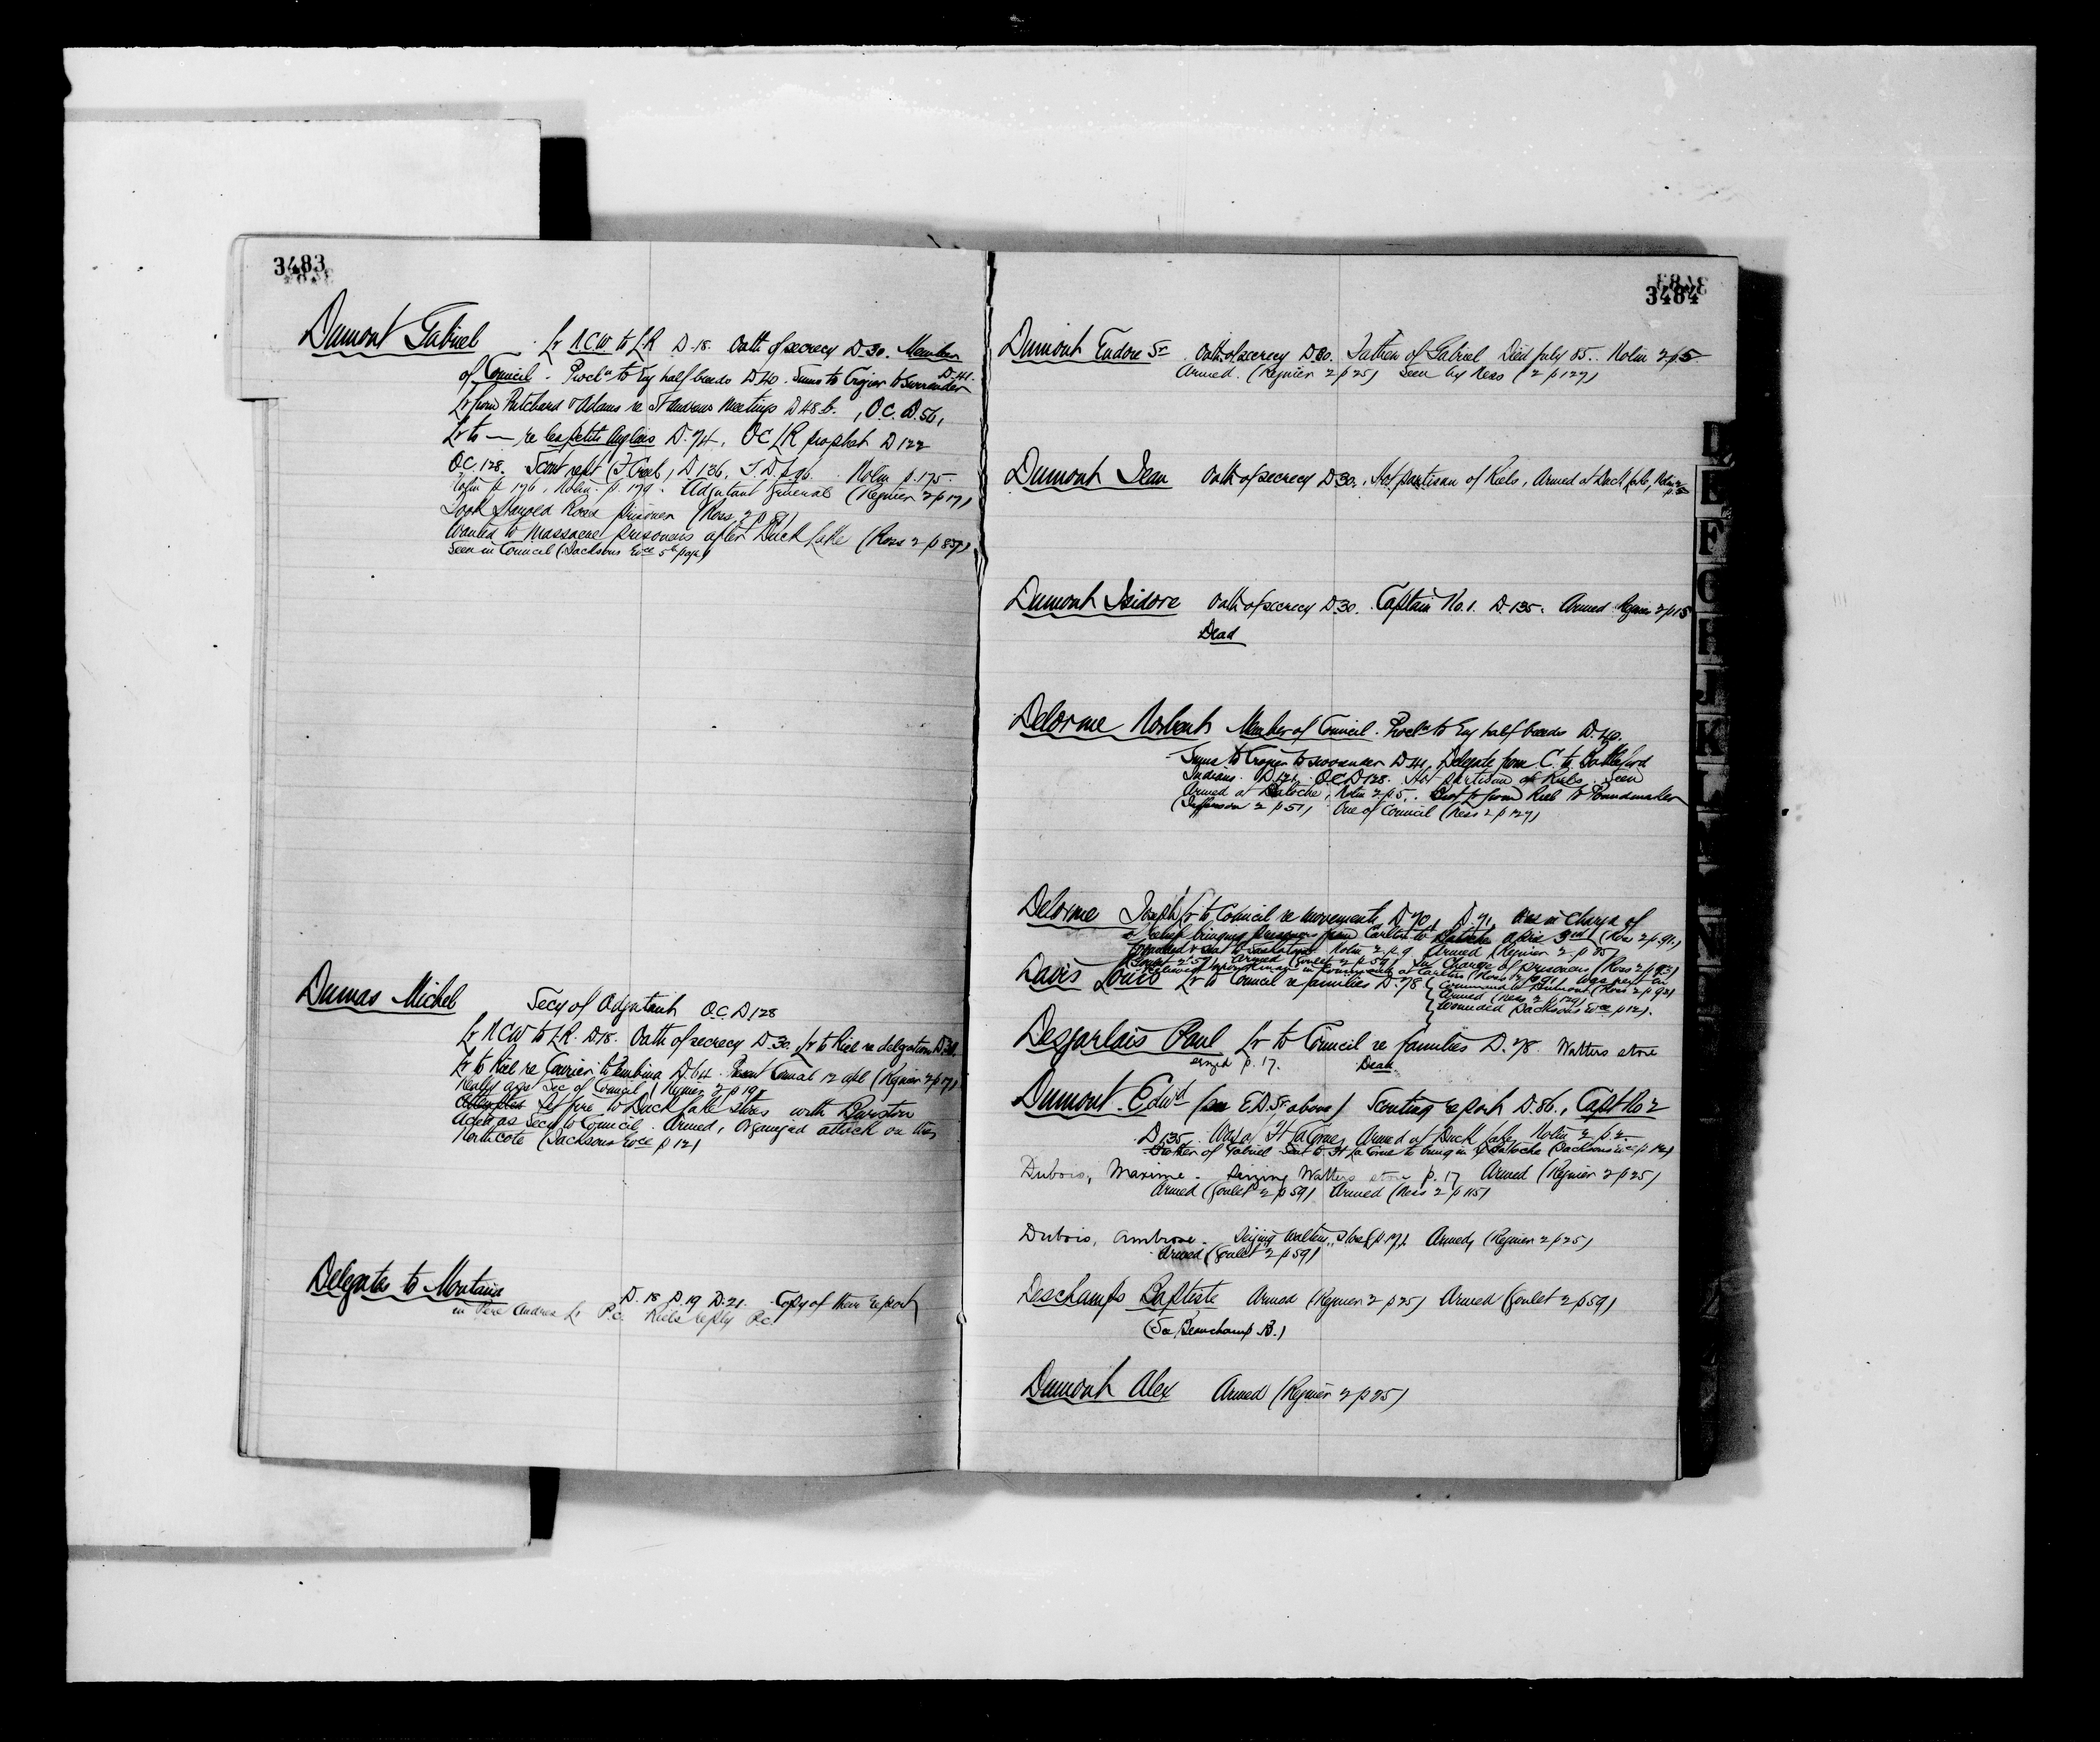 3483
Dumont Gabriel . Lr N.C.W to L R D.18. Oath of secrecy D.30. Member
of Council . Procln to Eng half breeds D.40. Sums to Crozier to surrender D.41.
Lr from Pritchard & Adams re St Andrews Meetings D 48 b. , O.C. D.56,
Lr to — re les petits Anglais D.74. OC LR prophet D 122
O.C. 128. Scout rept D 136. Nolin p.175.
Nolin p 176, Nolin p. 179. Adjutant General (Regnier 2 p 17)
Took Harold Ross prisoner (Ross 2 p 81)
Wanted to massacre prisoners after Duck Lake (Ross 2 p 85)
Seen in Council (Jacksons Evce 5th page)
Dumas Michel Secy of Adjutant O.C. D 128
Lr N.C.W to L.R. D.18. Oath of secrecy D.30. Lr to Riel re delegation
Lr to Riel re Courier to Pembina D.64. (Regnier 2 p 17)
Sec of Council (Regnier 2 p 19)
Set fire to Duck Lake stores with
Acted as Secy to Council. Armed, Organized attack on the
Northcote (Jacksons Evce p 12)
Delegates to Montana D. 18 D.19 D.21. Copy of their report
in Pere Andres Lr P.C. Riels reply P.C.
3484
Dumont Eudore Sr Oath of secrecy D.30. Father of Gabriel Died July 85.. Nolin 2 p 5
Armed. (Regnier 2 p 25) Seen by Ness (2 p 127)
Dumont Jean Oath of secrecy D 30. Hot partisan of Riels, Armed at Duck Lake, Nolin 2
Dumont Isidore Oath of secrecy D 30. Captain No.1. D.135. Armed Regnier 2 p 15
Dead
Delorme Norbert Member of Council. Procln to Eng half breeds D.40.
Sums to Crozier to surrender D 41, Delegate from C. to Battleford
Indians. D 121. OC D 128. Hot partisan of Riels. Seen
Armed at Batoche, Nolin 2 p 5. Brot Lr from Riel to Poundmaker
(Jefferson 2 p 51) One of Council (Ness 2 p 127)
Delorme Joseph Lr to Council re movements D 70, D.71, Was in charge of
bringing prisoners from Carlton to Batoche after 3rd (Ross 2 p 91.)
Nolin 2 p. 9 Armed (Regnier 2 p 25)
Armed (Goulet 2 p 59) In Charge of prisoners (Ross 2 p 93)
Davis Louis Lr to Council re families D.78 Command to Dumont (Ross 2 p 93)
Armed (Ness 2 p 129)
Wounded (Jacksons Evce p 12).
Desjarlais Paul Lr to Council re families D.78. Walters store
p. 17. Dead.
Dumont Edwd (see E.D. Sr above) Scouting report D.86., Capt No 2
D 135. Was at Ft a la Corne, Armed at Duck Lake, Nolin 2 p. 2.
Brother of Gabriel Sent to Ft la Corne to bring in
Dubois, Maxime. Seizing Walters store p. 17 Armed (Regnier 2 p 25)
Armed (Goulet 2 p 59) Armed (Ness 2 p 115)
Dubois, Ambrose. Seizing Walters store (p.17). Armed, (Regnier 2 p 25)
Armed (Goulet 2 p 59)
Deschamps Baptiste Armed (Regnier 2 p 25) Armed (Goulet 2 p 59)
(See Beauchamp B.)
Dumont Alex Armed (Regnier 2 p 25)